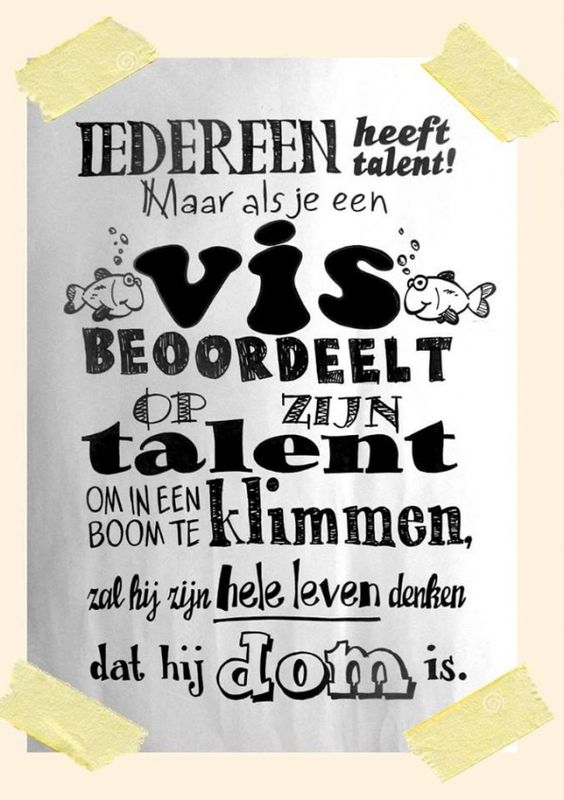 IEDEREEN heeft
talent!
Maar als je een
vis
BEOORDEELT
OP ZIJN
talent
OM IN EEN
BOOM TE klimmen,
zal hij zijn hele leven denken
dat hij dom is.